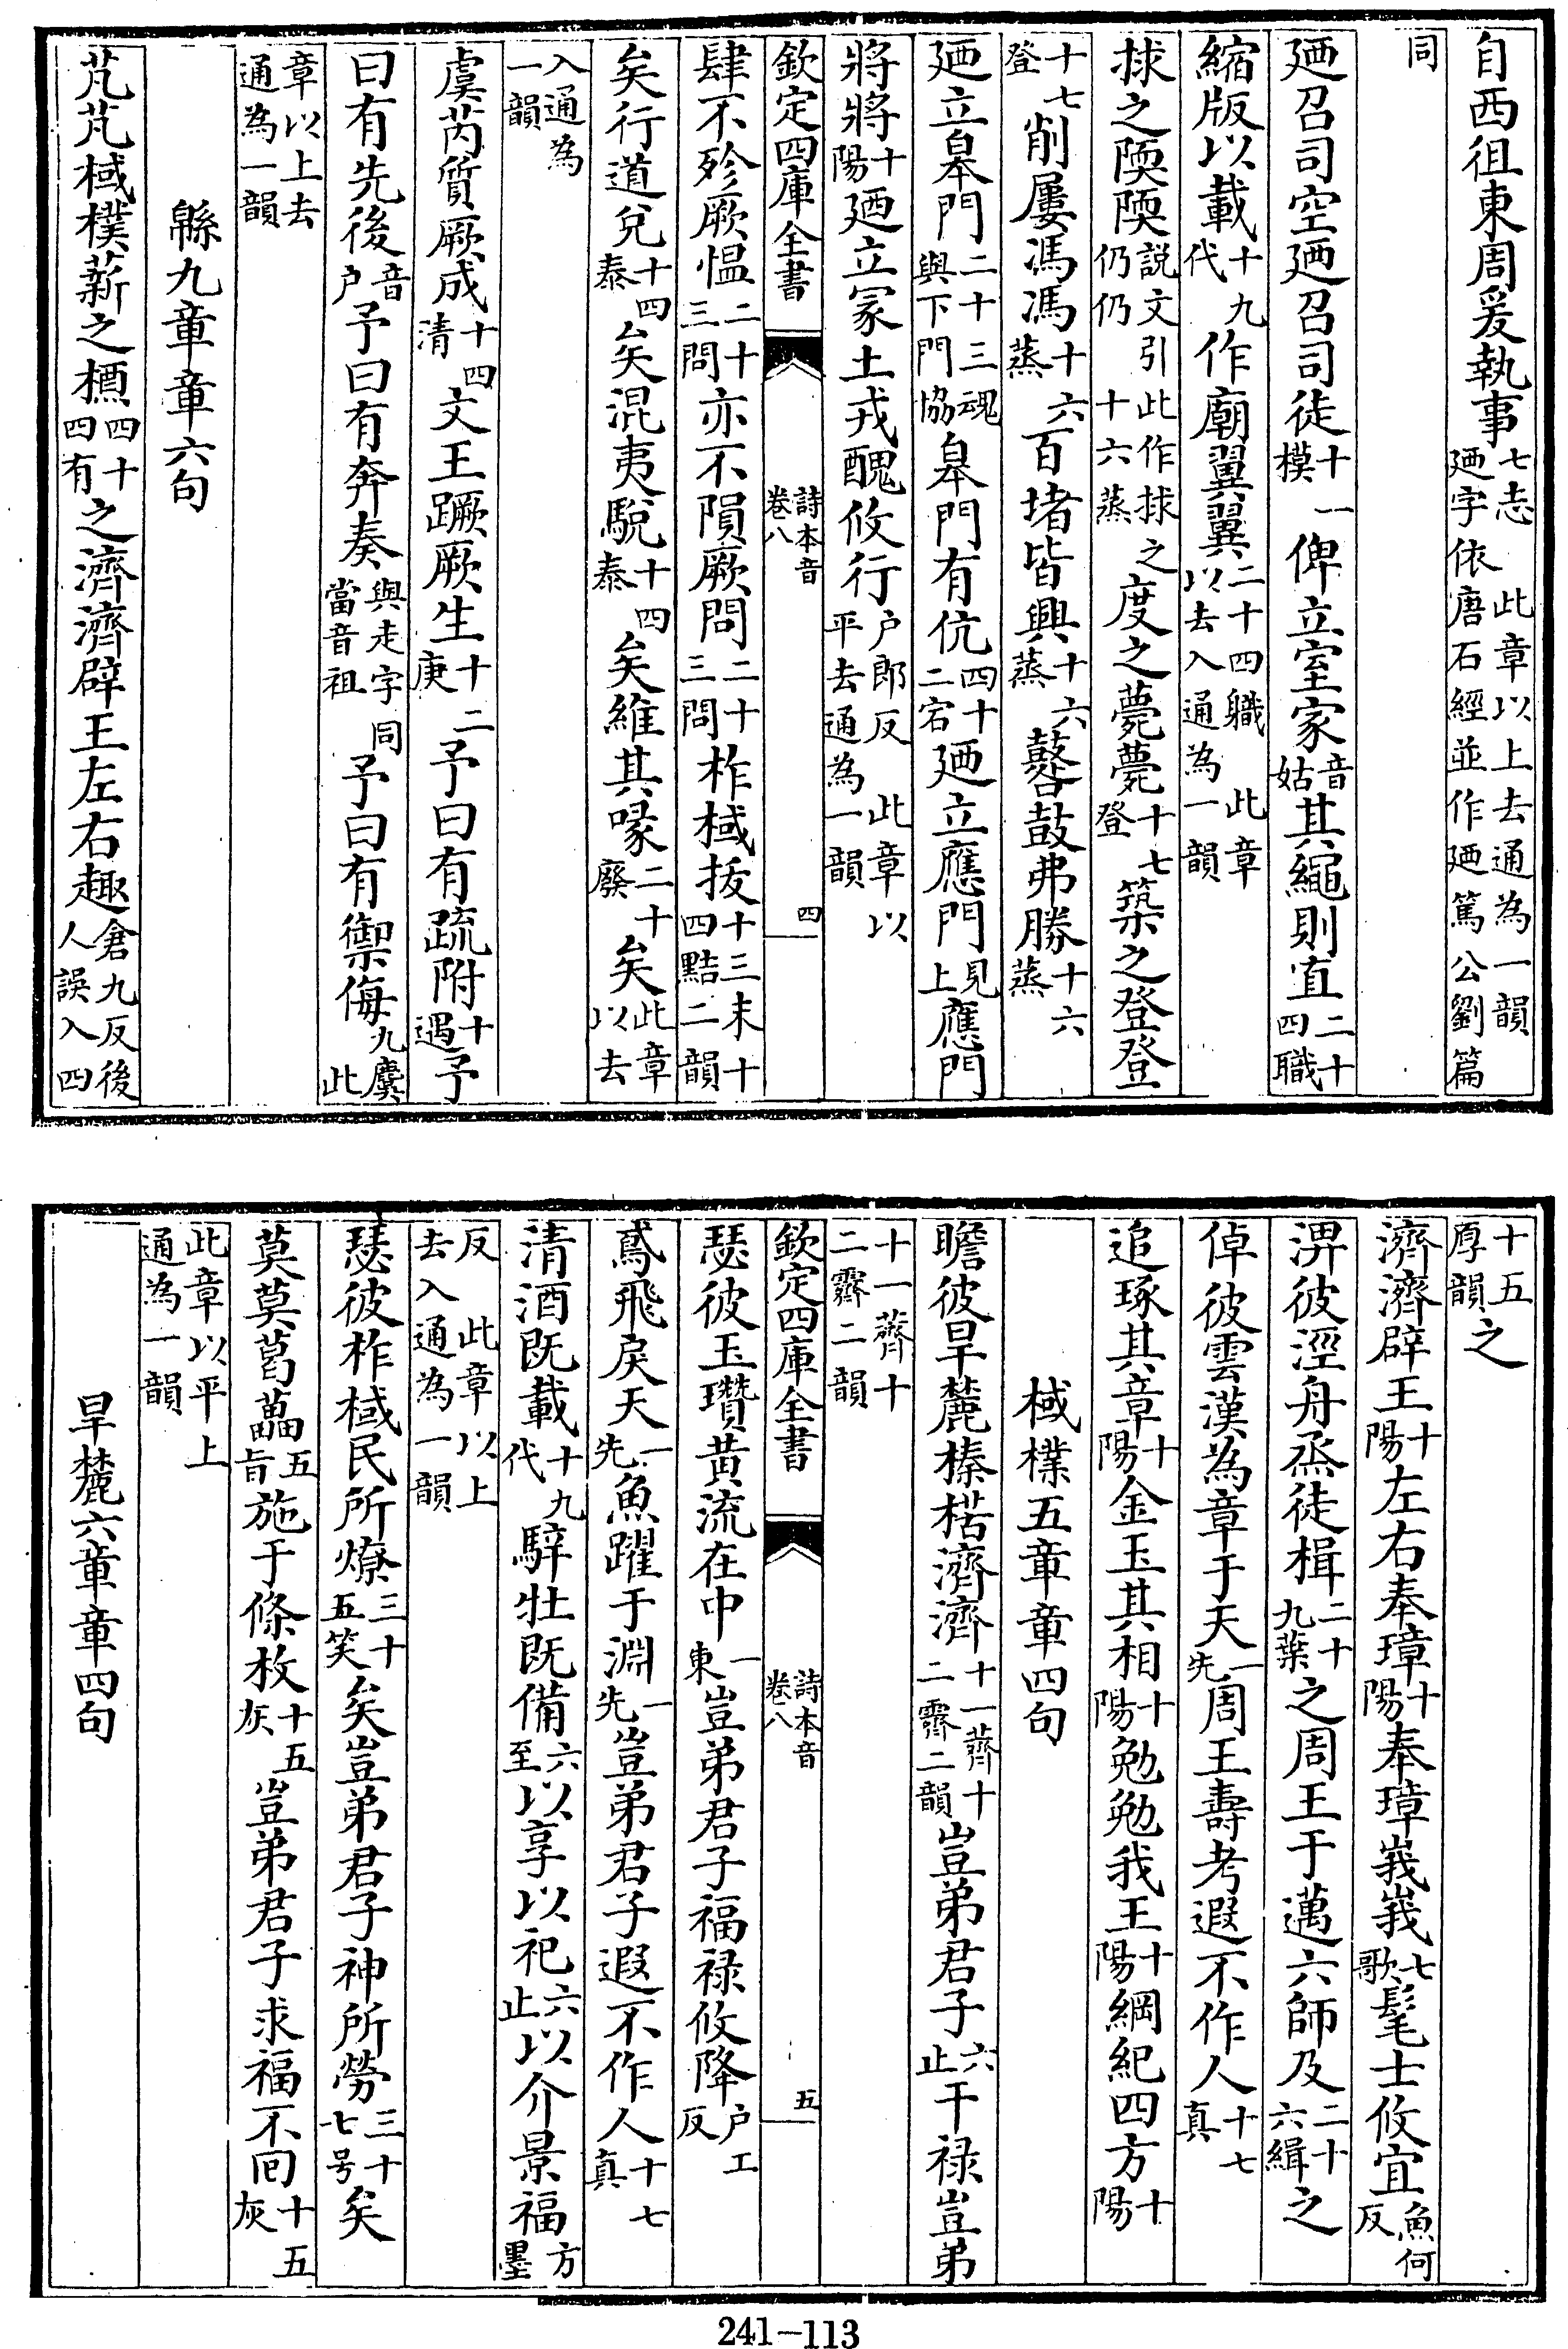 自西徂東周爰執事七志 此章以上去通為一韻廼字依唐石經並作廼篤公劉篇
同
廼召司空廼召司徒十一模俾立室家音姑其繩則直二十四職
縮版以載十九代作廟翼翼二十四職 此章以去入通為一韻
捄之陾陾説文引此作捄之仍仍 十六蒸度之薨薨十七登築之登登
十七登削屢馮馮十六蒸百堵皆興十六蒸鼛鼓弗勝十六蒸
廼立皋門二十三魂與下門協皐門有伉四十二宕廼立應門見上應門
將將十陽廼立冡土戎醜攸行户郎反 此章以平去通為一韻
欽定四庫全書 詩本音卷八 四
肆不殄厥愠二十三問亦不隕厥問二十三問柞棫拔十三末十四黠二韻
矣行道兌十四泰矣混夷駾十四泰矣維其喙二十廢矣此章以去
入通為一韻
虞芮質厥成十四清文王蹶厥生十二庚予曰有疏附十遇予
曰有先後音户予曰有奔奏與走字同當音祖予曰有禦侮九麌 此
章以上去通為一韻
緜九章章六句
芃芃棫樸薪之槱四十四有之濟濟辟王左右趣倉九反後人誤入四
十五厚韻之
濟濟辟王十陽左右奉璋十陽奉璋峩峩七歌髦士攸宜魚何反
淠彼涇舟烝徒楫二十九葉之周王于邁六師及二十六緝之
倬彼雲漢為章于天一先周王壽考遐不作人十七真
追琢其章十陽金玉其相十陽勉勉我王十陽綱紀四方十陽
棫樸五章章四句
瞻彼旱麓榛楛濟濟十一薺十二霽二韻豈弟君子六止干禄豈弟
十一薺十二霽二韻
欽定四庫全書 詩本音卷八 五
瑟彼玉瓚黄流在中一東豈弟君子福禄攸降户工反
鳶飛戾天一先魚躍于淵一先豈弟君子遐不作人十七真
清酒既載十九代騂牡既備六至以享以祀六止以介景福方墨
反 此章以上去入通為一韻
瑟彼柞棫民所燎三十五笑矣豈弟君子神所勞三十七号矣
莫莫葛藟五旨施于條枚十五灰豈弟君子求福不回十五灰
此章以平上通為一韻
旱麓六章章四句
241-113